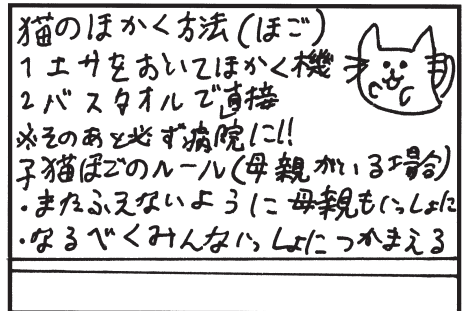 猫のほかく方法(ほご)
1 エサをおいてほかく機
2 バスタオルで直接
※そのあと必ず病院に!!
子猫ほごのルール(母親がいる場合)
・またふえないように母親もいっしょに
・なるべくみんないっしょにつかまえる